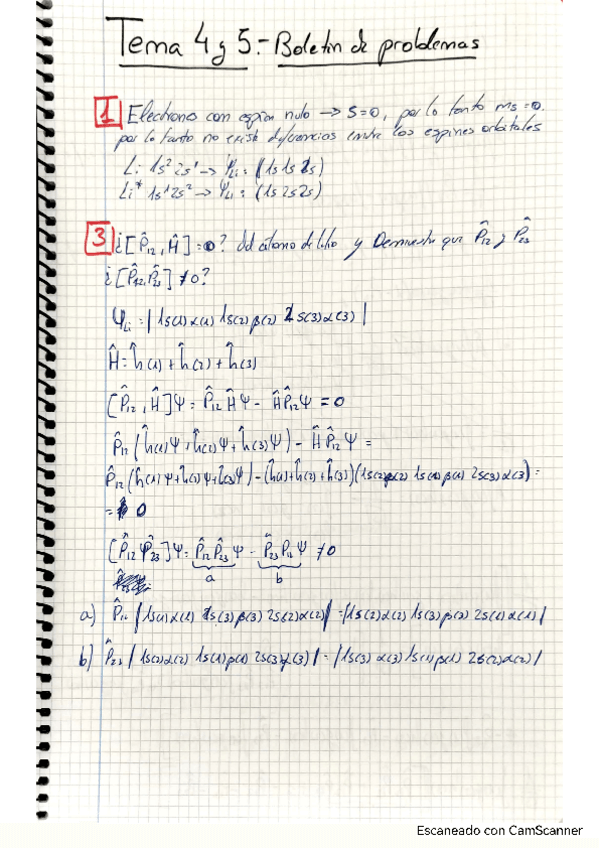 Tema 4 y 5.- Boletin de problemas
1 Electrones con espin nulo → S=0, por lo tanto ms=0.
por lo tanto no existe diferencias entre los espines orbitales
Li 1s² 2s¹ → Ψ_Li = (1s 1s 2s)
Li* 1s¹ 2s² → Ψ_Li = (1s 2s 2s)
3 ¿[P̂₁₂, Ĥ] = 0? del átomo de litio y Demuestra que P̂₁₂ y P̂₂₃
¿[P̂₁₂, P̂₂₃] ≠ 0?
Ψ_Li = | 1s(1)α(1) 1s(2)β(2) 2s(3)α(3) |
Ĥ = ĥ(1) + ĥ(2) + ĥ(3)
[P̂₁₂, Ĥ]Ψ = P̂₁₂ĤΨ - ĤP̂₁₂Ψ = 0
P̂₁₂ (ĥ(1)Ψ + ĥ(2)Ψ + ĥ(3)Ψ) - ĤP̂₁₂Ψ =
P̂₁₂ (ĥ(1)Ψ + ĥ(2)Ψ + ĥ(3)Ψ) - (ĥ(1) + ĥ(2) + ĥ(3)) (1s(2)α(2) 1s(1)β(1) 2s(3)α(3)) =
= 0
[P̂₁₂ P̂₂₃]Ψ = P̂₁₂P̂₂₃Ψ - P̂₂₃P̂₁₂Ψ ≠ 0
a b
a) P̂₁₂ | 1s(1)α(1) 1s(3)β(3) 2s(2)α(2) | = | 1s(2)α(2) 1s(3)β(3) 2s(1)α(1) |
b) P̂₂₃ | 1s(2)α(2) 1s(1)β(1) 2s(3)α(3) | = | 1s(3)α(3) 1s(1)β(1) 2s(2)α(2) |
Escaneado con CamScanner